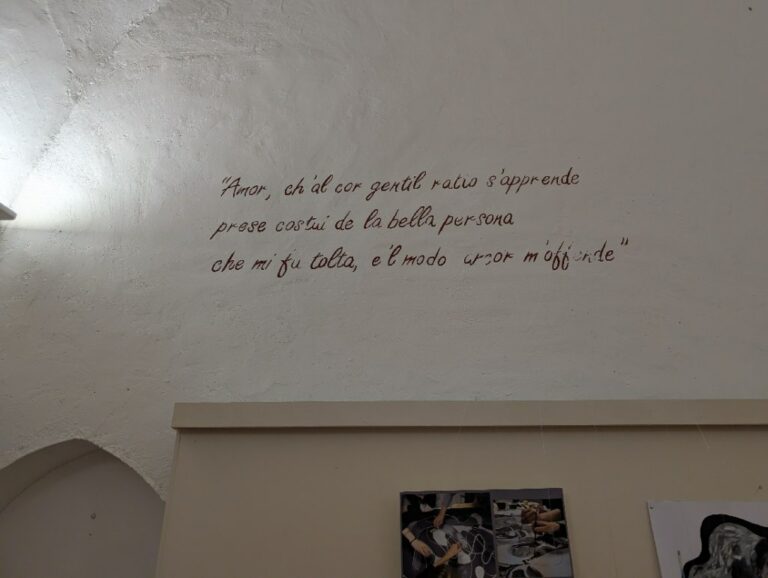 "Amor, ch'al cor gentil ratto s'apprende
prese costui de la bella persona
che mi fu tolta, e'l modo ancor m'offende"